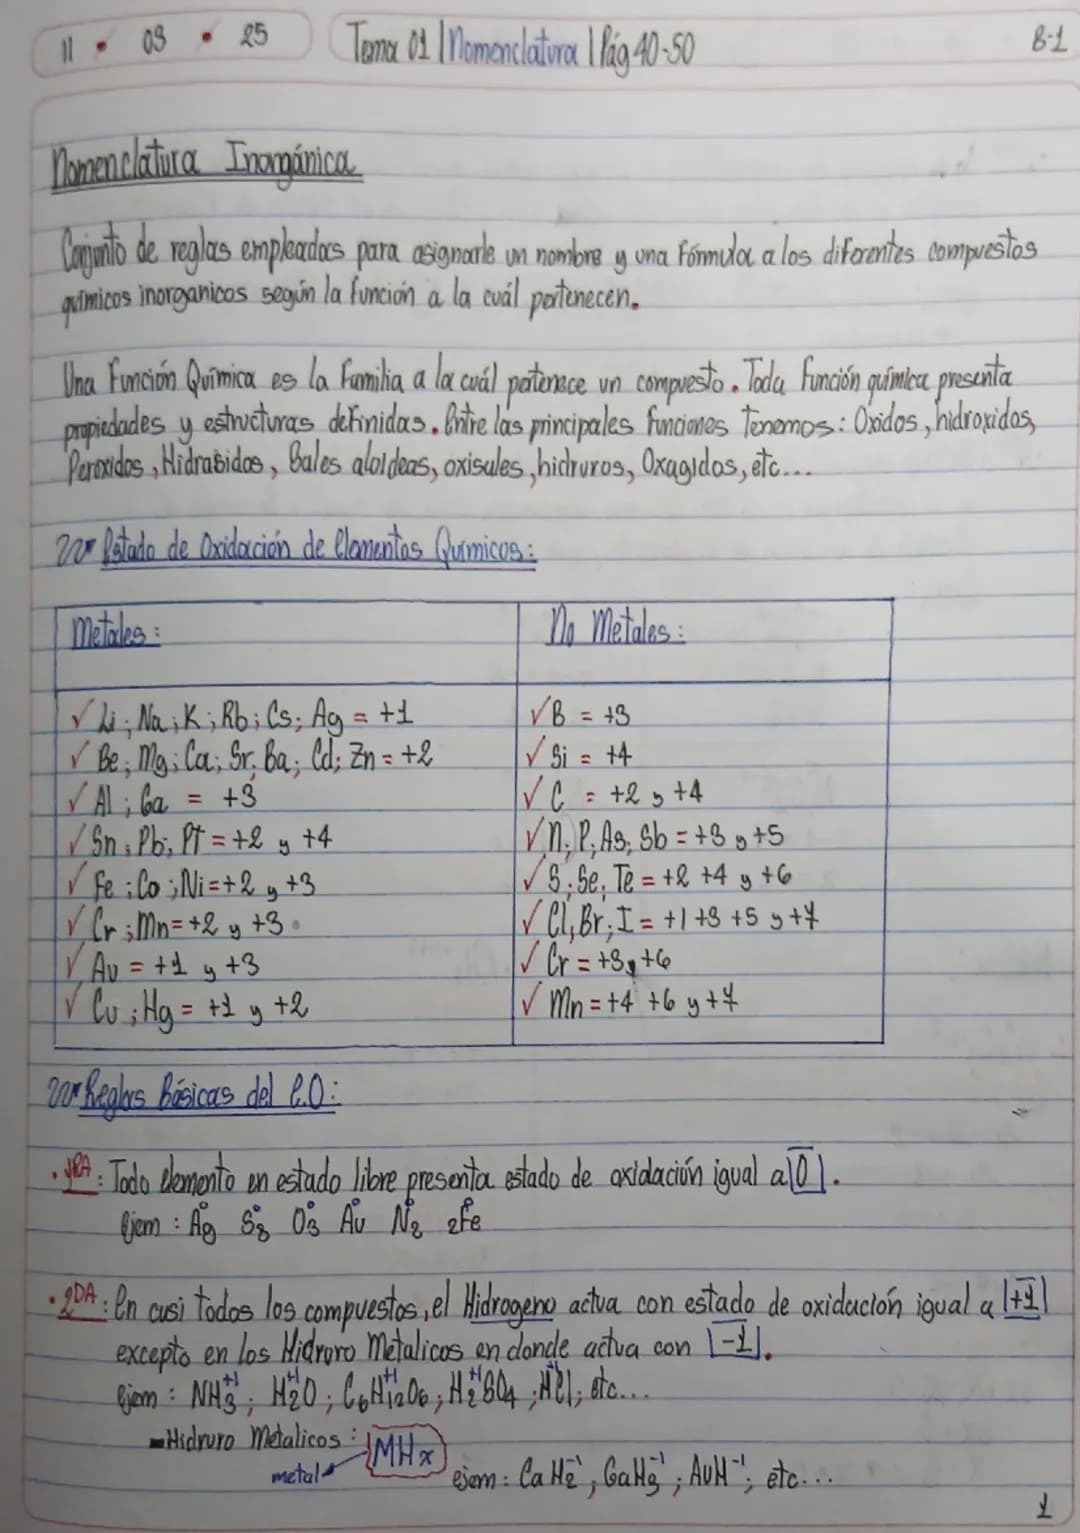 11 • 03 • 25
Tema 01 | Nomenclatura | Pág 40-50
B-1
Nomenclatura Inorgánica
Conjunto de reglas empleadas para asignarle un nombre y una Fórmula a los diferentes compuestos
químicos inorganicos según la función a la cuál pertenecen.
Una Función Química es la Familia a la cuál pertenece un compuesto. Toda Función química presenta
propiedades y estructuras definidas. Entre las principales Funciones Tenemos: Oxidos, hidroxidos,
Peroxidos, Hidrasidos, Sales aloideas, oxisales, hidruros, Oxagidos, etc...
Estado de Oxidación de Elementos Químicos:
Metales:
No Metales:
✓ Li; Na; K; Rb; Cs; Ag = +1
✓ B = +3
✓ Be; Mg; Ca; Sr; Ba; Cd; Zn = +2
✓ Si = +4
✓ Al; Ga = +3
✓ C = +2 y +4
✓ Sn; Pb; PT = +2 y +4
✓ N; P; As; Sb = +3 y +5
✓ Fe; Co; Ni = +2 y +3
✓ S; Se; Te = +2 +4 y +6
✓ Cr; Mn = +2 y +3
✓ Cl, Br; I = +1 +3 +5 y +7
✓ Au = +1 y +3
✓ Cr = +3 y +6
✓ Cu; Hg = +1 y +2
✓ Mn = +4 +6 y +7
Reglas Básicas del E.O:
• 1RA: Todo elemento en estado libre presenta estado de oxidación igual a |0|.
Ejem: Ag⁰ S₈⁰ O₃⁰ Au⁰ N₂⁰ 2Fe⁰
• 2DA: En casi todos los compuestos, el Hidrogeno actua con estado de oxidación igual a |+1|
excepto en los Hidruro Metalicos en donde actua con |-1|.
Ejem: NH₃⁺¹; H₂⁺¹O; C₆H₁₂⁺¹O₆; H₂⁺¹SO₄; H⁺¹Cl; etc...
- Hidruro Metalicos: MHx
metal
ejem: CaH₂⁻¹, GaH₃⁻¹; AuH⁻¹; etc...
1